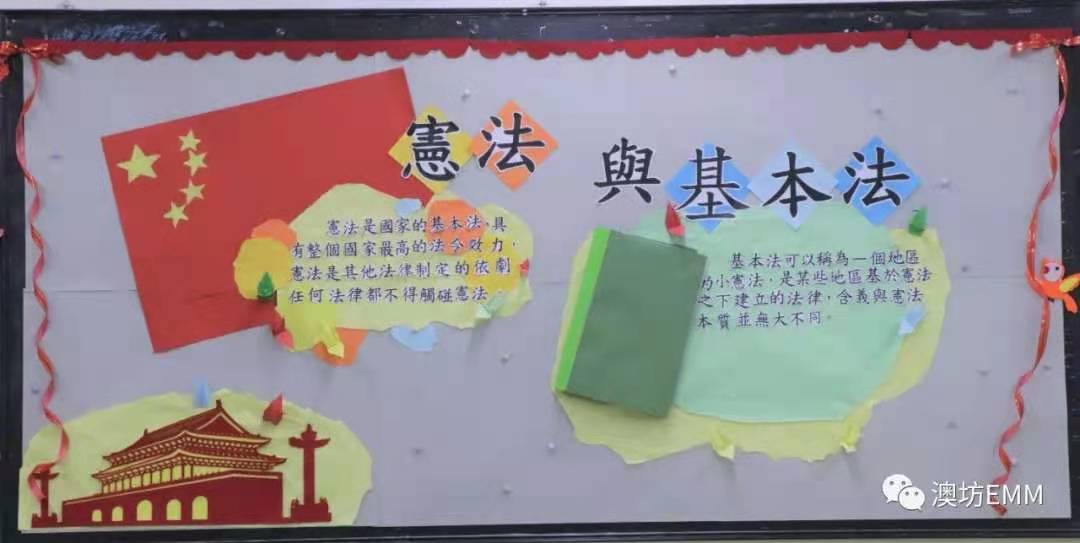 憲法
與基本法
憲法是國家的基本法，具
有整個國家最高的法令效力，
憲法是其他法律制定的依劇
任何法律都不得觸碰憲法
基本法可以稱為一個地區
的小憲法，是某些地區基於憲法
之下建立的法律，含義與憲法
本質並無大不同。
澳坊EMM